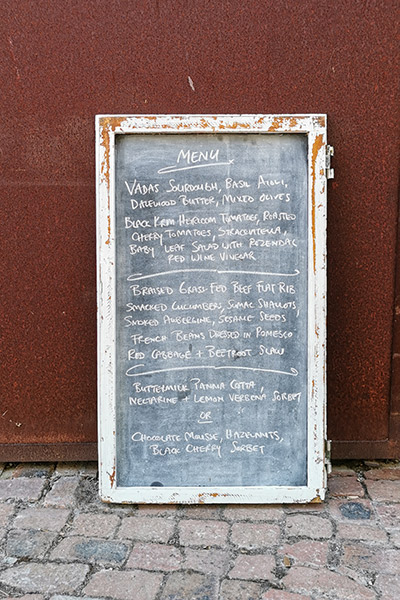 MENU
VADAS SOURDOUGH, BASIL AIOLI,
DALEWOOD BUTTER, MIXED OLIVES
BLACK KRIM HEIRLOOM TOMATOES, ROASTED
CHERRY TOMATOES, STRACCIATELLA,
BABY LEAF SALAD WITH ROZENDAL
RED WINE VINEGAR
BRAISED GRASS-FED BEEF FLAT RIB
SMACKED CUCUMBERS, SUMAC SHALLOTS,
SMOKED AUBERGINE, SESAME SEEDS
FRENCH BEANS DRESSED IN ROMESCO
RED CABBAGE + BEETROOT SLAW
BUTTERMILK PANNA COTTA,
NECTARINE + LEMON VERBENA SORBET
OR
CHOCOLATE MOUSSE, HAZELNUTS,
BLACK CHERRY SORBET